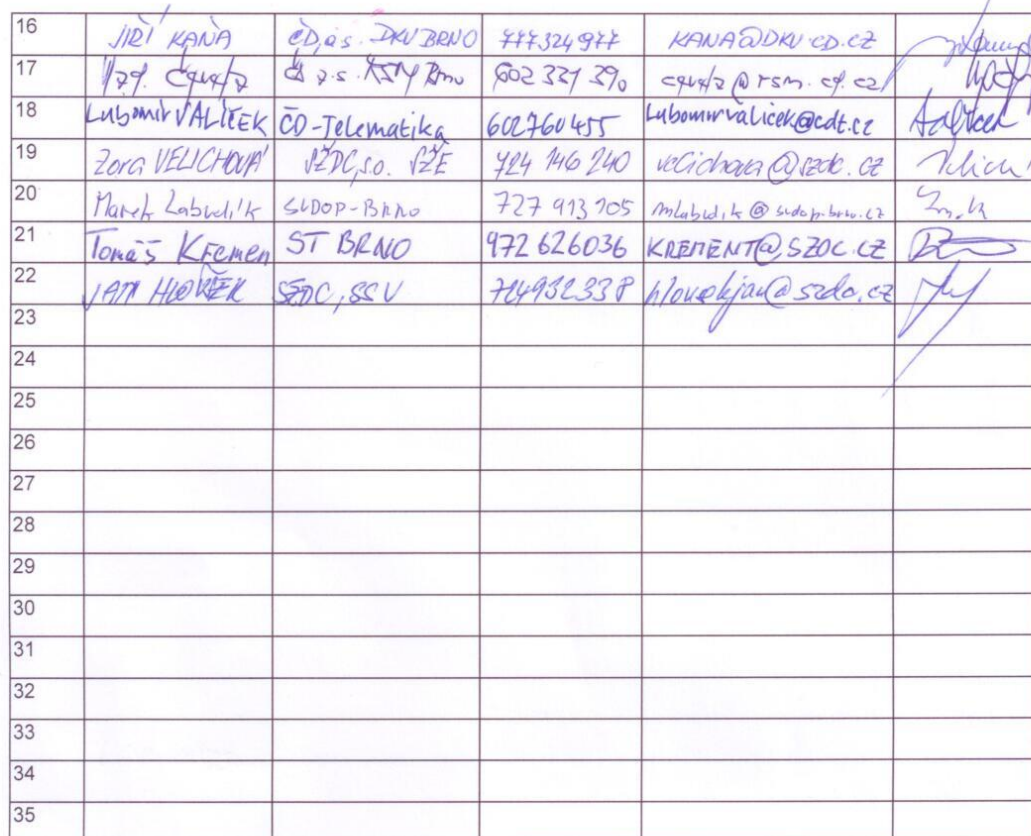 16 JIŘÍ KAŇA ČD, a.s. DKV BRNO 777324977 KANA@DKV.CD.CZ
17 ČD a.s. RSM Brno 602 331 390
18 Lubomír VALÍČEK ČD-Telematika 602760455 Lubomir.valicek@cdt.cz
19 Zora VELICHOVÁ SŽDC, s.o. SŽE 724 146 240 velichova@szdc.cz
20 Marek Zabudlík SUDOP-BRNO 727 913 105
21 Tomáš Křemen ST BRNO 972 626036 KREMENT@SZDC.CZ
22 JAN SŽDC, SSV 724932338 hlovekjan@szdc.cz
23
24
25
26
27
28
29
30
31
32
33
34
35